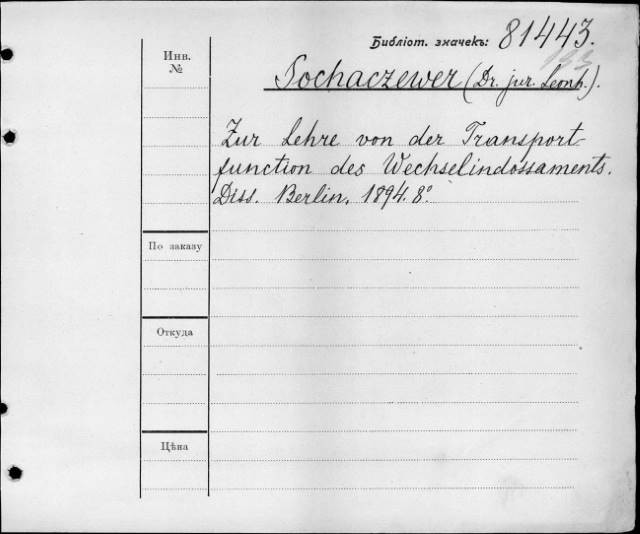 Библіот. значекъ: 81443.
Инв.
№
Sochaczewer (Dr. jur. Leonh.).
Zur Lehre von der Transport-
function des Wechselindossaments.
Diss. Berlin, 1894. 8°.
По заказу
Откуда
Цѣна